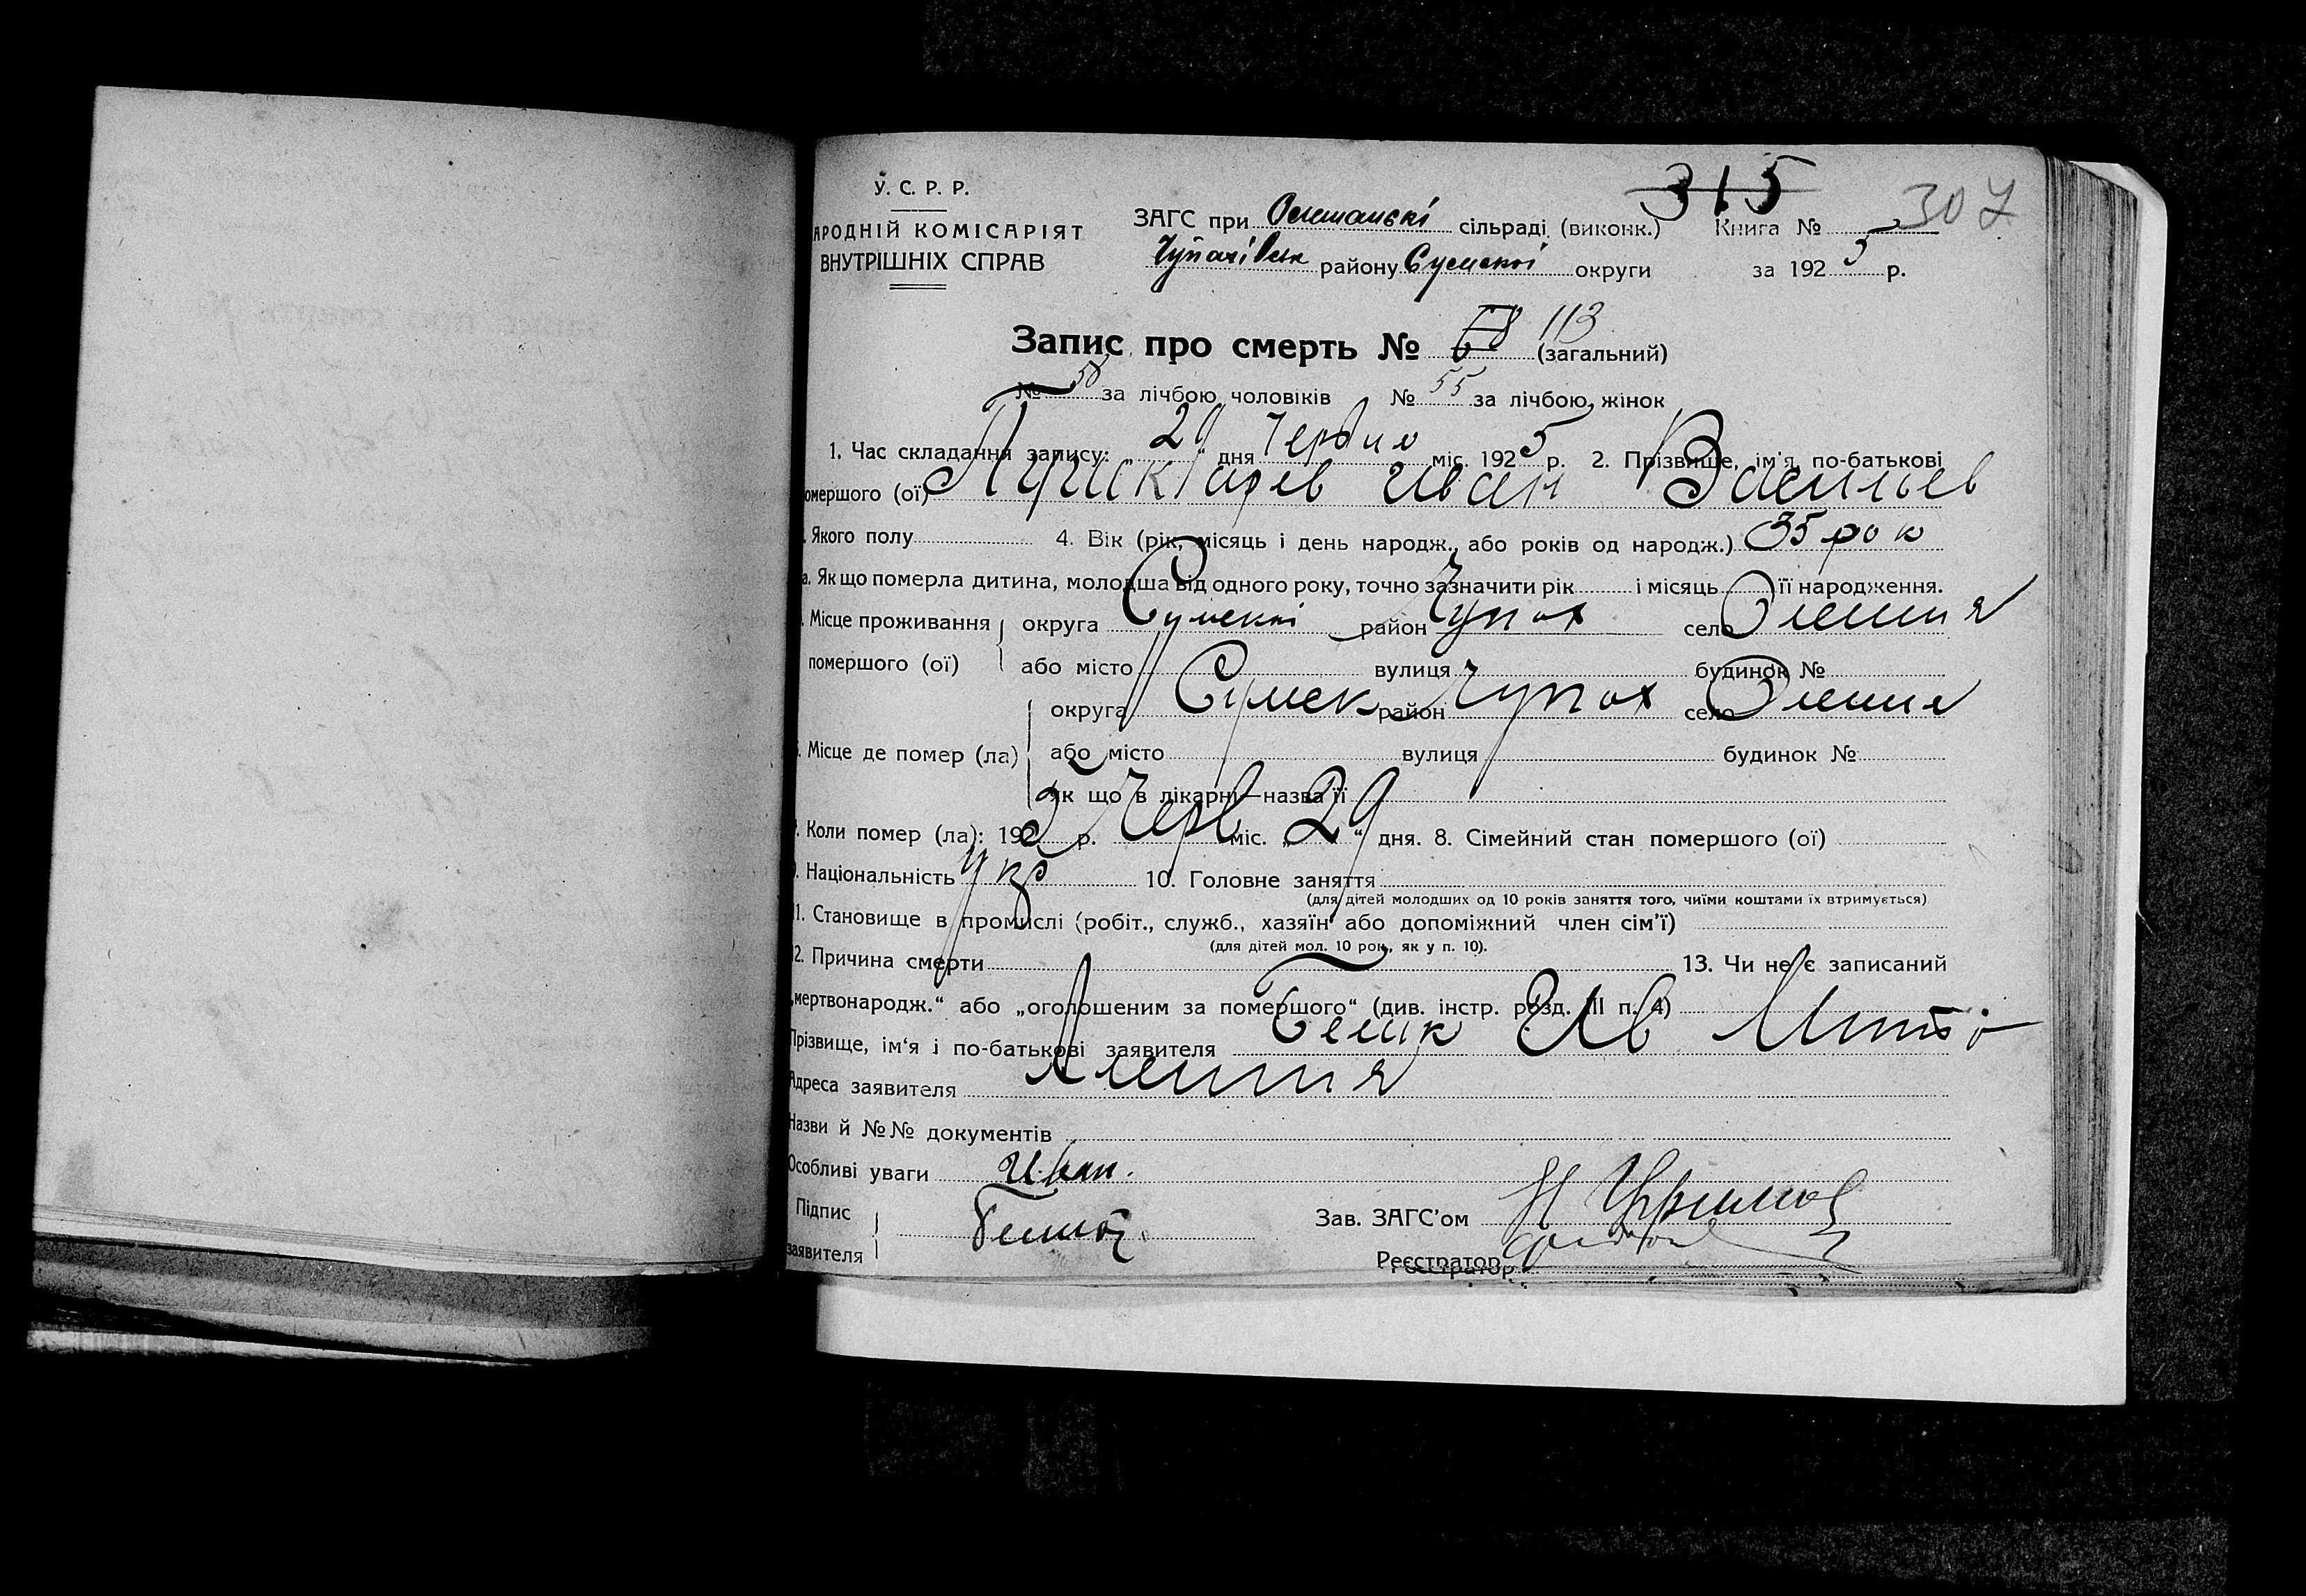 У. С. Р. Р.
АРОДНІЙ КОМІСАРІЯТ
ВНУТРІШНІХ СПРАВ
315
307
ЗАГС при сільраді (виконк.) Книга №
району Сумскої округи за 192 5 р.
Запис про смерть № 113 (загальний)
№ 58 за лічбою чоловіків № 55 за лічбою жінок
1. Час складання запису: 29 " дня Червня міс. 192 5 р. 2. Прізвище, ім'я, по-батькові
омершого (ої) Иван Васильев
. Якого полу 4. Вік (рік, місяць і день народж., або років од народж.) 35 рок
а. Як що померла дитина, молодша від одного року, точно зазначити рік і місяць її народження.
. Місце проживання округа Сумскої район Чупах село Олешня
помершого (ої) або місто вулиця будинок №
округа Сумск район Чупах село Олешня
. Місце де помер (ла) або місто вулиця будинок №
як що в лікарні—назва її
. Коли помер (ла): 192 5 р. Черв міс. „ 29 " дня. 8. Сімейний стан помершого (ої)
. Національність Укр 10. Головне заняття
(для дітей молодших од 10 років заняття того, чиїми коштами їх втримується)
11. Становище в промислі (робіт., служб., хазяїн або допоміжний член сім'ї)
(для дітей мол. 10 рок., як у п. 10).
12. Причина смерти 13. Чи не є записаний
„мертвонародж.“ або „оголошеним за помершого“ (див. інстр. розд. III п. 4)
Прізвище, ім'я і по-батькові заявителя Ив
Адреса заявителя
Назви й №№ документів
Особливі уваги Иван.
Підпис
заявителя
Зав. ЗАГС'ом
Реєстратор